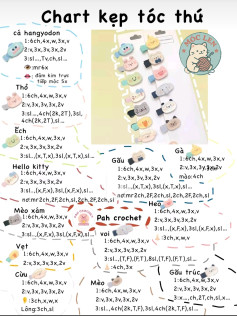 Chart kẹp tóc thú
cá hangyodon
1:6ch,4x,w,3x,v
2:v,3x,v,3x,3x,2v
3:sl...,Tv,ch,sl...
:mr6x
đâm kim trực
tiếp móc 5x
Thỏ
1:6ch,4x,w,3x,v
2:v,3x,v,3x,2v
3:sl...,4ch(2k,2T),3sl,
4ch(2k,2T),sl...
Ếch
1:6ch,4x,w,3x,v
2:v,3x,v,3x,2v
3:sl...,(x,T,x),3sl,(x,T,x),sl...
Hello kitty
1:6ch,4x,w,3x,v
2:v,3x,v,3x,2v
3:sl...,(x,F,x),3sl,(x,F,x),sl...
nơ:mr2ch,2F,2ch,sl,2ch,2F,2ch,sl
Mèo xám
1:6ch,4x,w,3x,v
2:v,3x,v,3x,2v
3:sl...(x,F,x),3sl,(x,F,x),sl...
Vẹt
1:6ch,4x,w,3x,v
2:v,3x,v,3x,2v
Cừu
1:6ch,4x,w,3x,v
2:v,3x,v,3x,2v
:3ch,x,w,x
Lông:3ch,sl
Gà
1:6ch,4x,w,3x,v
2:v,3x,v,3x,2v
mào:4ch
Gấu
1:6ch,4x,w,3x,v
2:v,3x,v,3x,2v
3:sl...(x,T,x),3sl,(x,T,x),sl...
nơ:mr2ch,2F,2ch,sl,2ch,2F,2ch,sl
Heo
1:6ch,4x,w,3x,v
2:v,3x,v,3x,2v
3:sl...(x,F,x),3sl,(x,F,x),sl...
:3ch,x,w,v
Peh crochet
voi
1:6ch,4x,w,3x,v
2:v,3x,v,3x,2v
3:sl...,(T,F),(F,T),8sl,(T,F),(F,T),sl...
:4ch,3x
Mèo
1:6ch,4x,w,3x,v
2:v,3x,v,3x,2v
3:sl...,4ch(2k,T,F),3sl,4ch(2k,T,F),sl...
Gấu trúc
1:6ch,4x,w,3x,v
2:v,3x,v,3x,2v
3:x...,ch,2T,ch,sl,x...